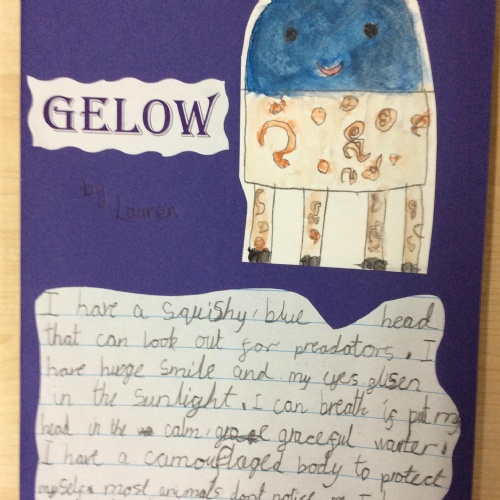 GELOW
by
Lauren
I have a squishy blue head
that can look out for preadators. I
have huege smile and my eyes glisen
in the sunlight. I can breath if put my
head in the calm graceful warter.
I have a camouflaged body to protect
myself most animals dont notice me I